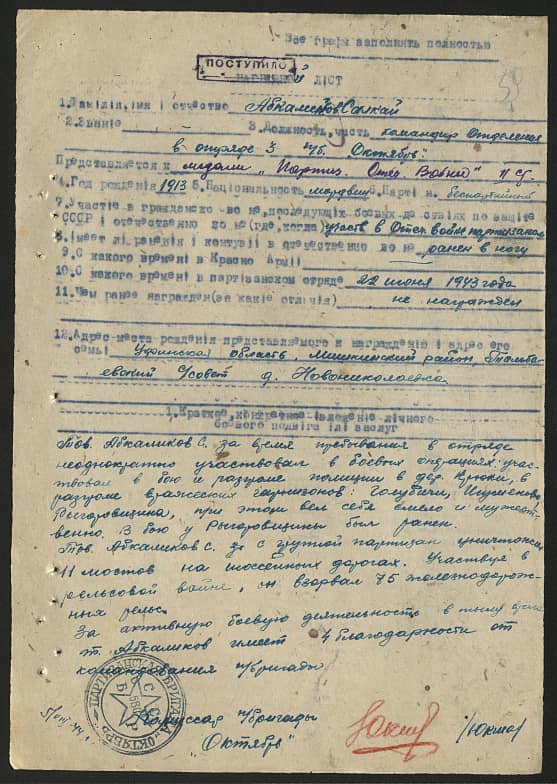 Все графы заполнить полностью
ПОСТУПИЛО
НАГРАДНОЙ ЛІСТ
1.Фамілія,імя і отчество Абкаликов Сапкай
2.Званіе 3.Должность,часть командир отделения
в отряде 3 п/б. "Октябрь".
Представляется к медали "Партиз. Отеч. Войны" II ст.
4.Год рожденія 1913 5.Національность 6.Парті н. беспартийный
7.Участіе в гражданско во не,последующіх боевых де ствіях по защіте
СССР і отечественно во не(где,когда) участв. в Отеч. войне партизаном
8.Імеет лі раненія і контузіі в отечественно во не ранен в ногу
9.С какого временi в Красно Арміі
10.С какого временi в партізанском отряде 22 июня 1943 года
11.Чем ранее награжден(за какіе отлічія) не награжден
12.Адрес места рожденія представляемого к награжденію і адрес его
семьі Уфимская область, Мишкинский район,
евский с/совет д. Новониколаевка
1.Краткое,конкретное ізложеніе лічного
боевого подвіга ілі заслуг
Тов. Абкаликов С. за время пребывания в отряде
неоднократно участвовал в боевых операциях: учас-
твовал в бою и разгроме полиции в дер. Крюки, в
разгроме вражеских гарнизонов: Голубичи,
Рыгоровщина, при этом вел себя смело и мужест-
венно. В бою у Рыгоровщины был ранен.
Тов. Абкаликов С. с группой партизан уничтожил
11 мостов на шоссейных дорогах. Участвуя в
рельсовой войне, он взорвал 75 железнодорож-
ных рельс.
За активную боевую деятельность в тылу врага
т. Абкаликов имеет 4 благодарности от
командования п/бригады
ПАРТИЗАНСКАЯ БРИГАДА "ОКТЯБРЬ"
БССР
Комиссар п/бригады
"Октябрь"